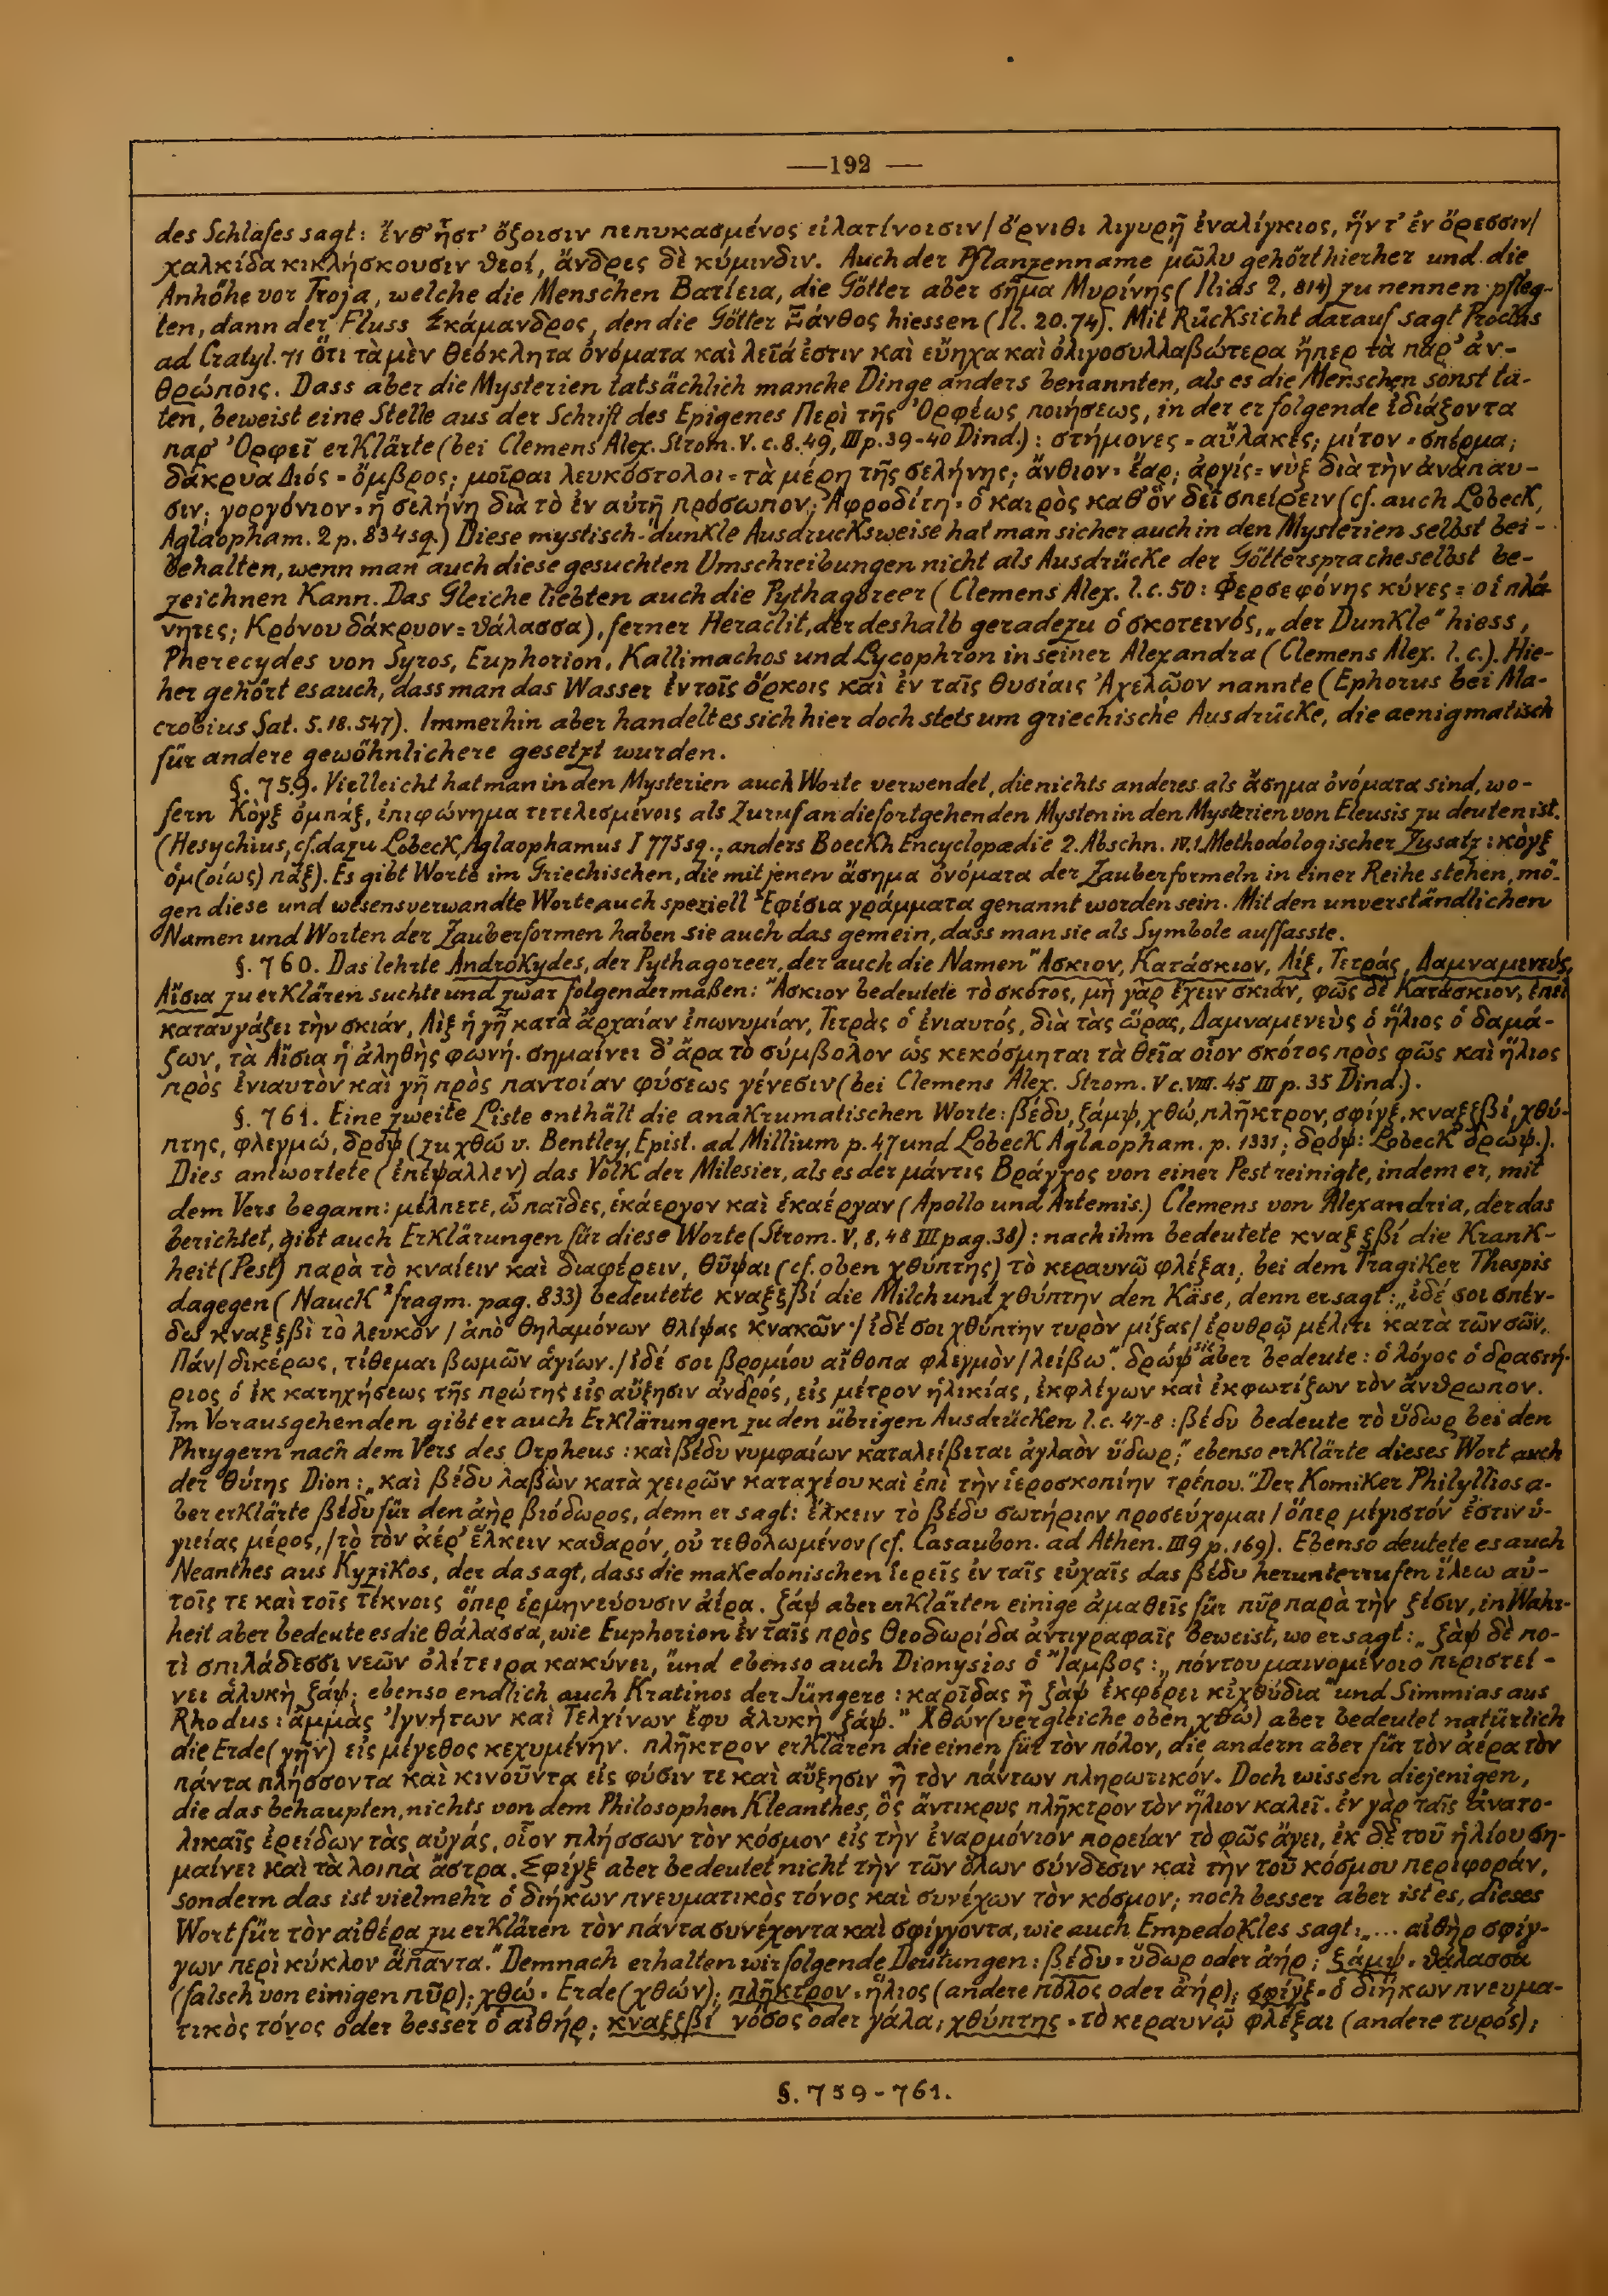 —192—
des Schlafes sagt: ἔνθ' ἧστ' ὄζοισιν πεπυκασμένος εἰλατίνοισιν/ ὄρνιθι λιγυρῇ ἐναλίγκιος, ἥν τ' ἐν ὄρεσσιν/
χαλκίδα κικλήσκουσιν θεοί, ἄνδρες δὲ κύμινδιν. Auch der Pflanzenname μῶλυ gehört hierher und die
Anhöhe vor Troja, welche die Menschen Βατίεια, die Götter aber σῆμα Μυρίνης (Ilias 2, 814) zu nennen pfleg-
ten, dann der Fluss Σκάμανδρος, den die Götter Ξάνθος hiessen (Il. 20.74). Mit Rücksicht darauf sagt Proclus
ad Cratyl. 71 ὅτι τὰ μὲν θεόκλητα ὀνόματα καὶ λεῖά ἐστιν καὶ εὔηχα καὶ ὀλιγοσυλλαβώτερα ἤπερ τὰ παρ' ἀν-
θρώποις. Dass aber die Mysterien tatsächlich manche Dinge anders benannten, als es die Menschen sonst ta-
ten, beweist eine Stelle aus der Schrift des Epigenes Περὶ τῆς Ὀρφέως ποιήσεως, in der er folgende ἰδιάζοντα
παρ' Ὀρφεῖ erklärte (bei Clemens Alex. Strom. V. c. 8. 49, III p. 39-40 Dind.): στήμονες = αὔλακες; μίτον = σπέρμα;
δάκρυα Διός = ὄμβρος; μοῖραι λευκόστολοι = τὰ μέρη τῆς σελήνης; ἄνθιον = ἔαρ; ἀργίς = νὺξ διὰ τὴν ἀνάπαυ-
σιν; γοργόνιον = ἡ σελήνη διὰ τὸ ἐν αὐτῇ πρόσωπον; Ἀφροδίτη = ὁ καιρὸς καθ' ὃν δεῖ σπείρειν (cf. auch Lobeck,
Aglaopham. 2 p. 834 sq.) Diese mystisch-dunkle Ausdrucksweise hat man sicher auch in den Mysterien selbst bei-
behalten, wenn man auch diese gesuchten Umschreibungen nicht als Ausdrücke der Göttersprache selbst be-
zeichnen kann. Das Gleiche liebten auch die Pythagoreer (Clemens Alex. l. c. 50: Φερσεφόνης κύνες = οἱ πλά-
νητες; Κρόνου δάκρυον = θάλασσα), ferner Heraclit, der deshalb geradezu ὁ σκοτεινός, „der Dunkle" hiess,
Pherecydes von Syros, Euphorion, Kallimachos und Lycophron in seiner Alexandra (Clemens Alex. l. c.). Hie-
her gehört es auch, dass man das Wasser ἐν τοῖς ὅρκοις καὶ ἐν ταῖς θυσίαις Ἀχελῷον nannte (Ephorus bei Ma-
crobius Sat. 5. 18. 547). Immerhin aber handelt es sich hier doch stets um griechische Ausdrücke, die aenigmatisch
für andere gewöhnlichere gesetzt wurden.
§. 759. Vielleicht hat man in den Mysterien auch Worte verwendet, die nichts anderes als ἄσημα ὀνόματα sind, wo-
fern Κόγξ ὀμπάξ, ἐπιφώνημα τετελεσμένοις als Zuruf an die fortgehenden Mysten in den Mysterien von Eleusis zu deuten ist.
(Hesychius, cf. dazu Lobeck, Aglaophamus I 775 sq., anders Boeckh Encyclopædie 2. Abschn. IV. 1. Methodologischer Zusatz: κὸγξ
ὁμ(οίως) πάξ). Es gibt Worte im Griechischen, die mit jenen ἄσημα ὀνόματα der Zauberformeln in einer Reihe stehen, mö-
gen diese und wesensverwandte Worte auch speziell Ἐφέσια γράμματα genannt worden sein. Mit den unverständlichen
Namen und Worten der Zauberformen haben sie auch das gemein, dass man sie als Symbole auffasste.
§. 760. Das lehrte Androkydes, der Pythagoreer, der auch die Namen Ἄσκιον, Κατάσκιον, Λίξ, Τετράς, Δαμναμενεύς,
Αἴσια zu erklären suchte und zwar folgendermaßen: Ἄσκιον bedeutete τὸ σκότος, μὴ γὰρ ἔχειν σκιάν, φῶς δὲ Κατάσκιον, ἐπεὶ
καταυγάζει τὴν σκιάν, Λὶξ ἡ γῆ κατὰ ἀρχαίαν ἐπωνυμίαν, Τετρὰς ὁ ἐνιαυτός, διὰ τὰς ὥρας, Δαμναμενεὺς ὁ ἥλιος ὁ δαμά-
ζων, τὰ Αἴσια ἡ ἀληθὴς φωνή. σημαίνει δ' ἄρα τὸ σύμβολον ὡς κεκόσμηται τὰ θεῖα οἷον σκότος πρὸς φῶς καὶ ἥλιος
πρὸς ἐνιαυτὸν καὶ γῆ πρὸς παντοίαν φύσεως γένεσιν (bei Clemens Alex. Strom. V c. VIII. 45 III p. 35 Dind.).
§. 761. Eine zweite Liste enthält die anakrumatischen Worte: βέδυ, ξάμψ, χθώ, πλῆκτρον, σφίγξ, κναξζβί, χθύ-
πτης, φλεγμώ, δρόψ (zu χθώ v. Bentley, Epist. ad Millium p. 47 und Lobeck Aglaopham. p. 1331; δρόψ: Lobeck δρώψ.).
Dies antwortete (ἐπέψαλλεν) das Volk der Milesier, als es der μάντις Βράγχος von einer Pest reinigte, indem er, mit
dem Vers begann: μέλπετε, ὦ παῖδες, ἑκάεργον καὶ ἑκαέργαν (Apollo und Artemis.) Clemens von Alexandria, der das
berichtet, gibt auch Erklärungen für diese Worte (Strom. V, 8, 48 III pag. 38): nach ihm bedeutete κναξζβί die Krank-
heit (Pest) παρὰ τὸ κναίειν καὶ διαφέρειν, θῦψαι (cf. oben χθύπτης) τὸ κεραυνῷ φλέξαι; bei dem Tragiker Thespis
dagegen (Nauck² fragm. pag. 833) bedeutete κναξζβί die Milch und χθύπτην den Käse, denn er sagt: „ἰδέ σοι σπέν-
δω κναξζβὶ τὸ λευκὸν / ἀπὸ θηλαμόνων θλίψας κνακῶν·/ ἰδέ σοι χθύπτην τυρὸν μίξας/ ἐρυθρῷ μέλιτι κατὰ τῶν σῶν,
Πάν/ δικέρως, τίθεμαι βωμῶν ἁγίων./ ἰδέ σοι βρομίου αἴθοπα φλεγμὸν/ λείβω". δρώψ aber bedeute: ὁ λόγος ὁ δραστή-
ριος ὁ ἐκ κατηχήσεως τῆς πρώτης εἰς αὔξησιν ἀνδρός, εἰς μέτρον ἡλικίας, ἐκφλέγων καὶ ἐκφωτίζων τὸν ἄνθρωπον.
Im Vorausgehenden gibt er auch Erklärungen zu den übrigen Ausdrücken l. c. 47-8: βέδυ bedeute τὸ ὕδωρ bei den
Phrygern nach dem Vers des Orpheus: καὶ βέδυ νυμφαίων καταλείβεται ἀγλαὸν ὕδωρ;" ebenso erklärte dieses Wort auch
der θύτης Dion: „καὶ βέδυ λαβὼν κατὰ χειρῶν καταχέου καὶ ἐπὶ τὴν ἱεροσκοπίην τρέπου." Der Komiker Philyllios a-
ber erklärte βέδυ für den ἀὴρ βιόδωρος, denn er sagt: ἕλκειν τὸ βέδυ σωτήριον προσεύχομαι / ὅπερ μέγιστόν ἐστιν ὑ-
γιείας μέρος,/ τὸ τὸν ἀέρ' ἕλκειν καθαρόν, οὐ τεθολωμένον (cf. Casaubon. ad Athen. III 9 p. 169). Ebenso deutete es auch
Neanthes aus Kyzikos, der da sagt, dass die makedonischen ἱερεῖς ἐν ταῖς εὐχαῖς das βέδυ herunterrufen ἵλεω αὐ-
τοῖς τε καὶ τοῖς τέκνοις ὅπερ ἑρμηνεύουσιν ἀέρα. ξάψ aber erklärten einige ἀμαθεῖς für πῦρ παρὰ τὴν ξέσιν, in Wahr-
heit aber bedeute es die θάλασσα, wie Euphorion ἐν ταῖς πρὸς Θεοδωρίδα ἀντιγραφαῖς beweist, wo er sagt: „ξὰψ δὲ πο-
τὶ σπιλάδεσσι νεῶν ὀλέτειρα κακύνει," und ebenso auch Dionysios ὁ Ἴαμβος: „πόντου μαινομένοιο περιστεί-
νει ἁλυκὴ ζάψ; ebenso endlich auch Kratinos der Jüngere: καρῖδας ἡ ξὰψ ἐκφέρει κἰχθύδια" und Simmias aus
Rhodus: ἀμμὰς Ἰγνήτων καὶ Τελχίνων ἔφυ ἁλυκὴ ζάψ." Χθών (vergleiche oben χθώ) aber bedeutet natürlich
die Erde (γῆν) εἰς μέγεθος κεχυμένην. πλῆκτρον erklären die einen für τὸν πόλον, die andern aber für τὸν ἀέρα τὸν
πάντα πλήσσοντα καὶ κινοῦντα εἰς φύσιν τε καὶ αὔξησιν ἢ τὸν πάντων πληρωτικόν. Doch wissen diejenigen,
die das behaupten, nichts von dem Philosophen Kleanthes, ὃς ἄντικρυς πλῆκτρον τὸν ἥλιον καλεῖ. ἐν γὰρ ταῖς ἀνατο-
λικαῖς ἐρείδων τὰς αὐγάς, οἷον πλήσσων τὸν κόσμον εἰς τὴν ἐναρμόνιον πορείαν τὸ φῶς ἄγει, ἐκ δὲ τοῦ ἡλίου ση-
μαίνει καὶ τὰ λοιπὰ ἄστρα. Σφίγξ aber bedeutet nicht τὴν τῶν ὅλων σύνδεσιν καὶ τὴν τοῦ κόσμου περιφοράν,
sondern das ist vielmehr ὁ διήκων πνευματικὸς τόνος καὶ συνέχων τὸν κόσμον; noch besser aber ist es, dieses
Wort für τὸν αἰθέρα zu erklären τὸν πάντα συνέχοντα καὶ σφίγγοντα, wie auch Empedokles sagt: „... αἰθὴρ σφίγ-
γων περὶ κύκλον ἅπαντα." Demnach erhalten wir folgende Deutungen: βέδυ = ὕδωρ oder ἀήρ; ξάμψ = θάλασσα
(falsch von einigen πῦρ); χθώ = Erde (χθών); πλῆκτρον = ἥλιος (andere πόλος oder ἀήρ); σφίγξ = ὁ διήκων πνευμα-
τικὸς τόνος oder besser ὁ αἰθήρ; κναξζβί νόσος oder γάλα; χθύπτης = τὸ κεραυνῷ φλέξαι (andere τυρός);
§. 759-761.